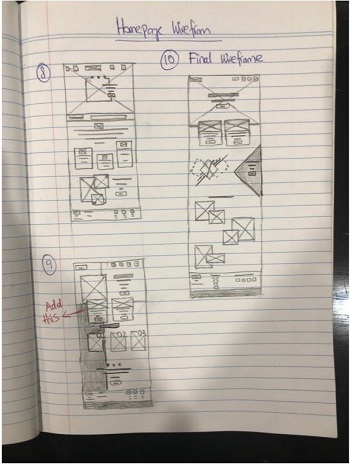 Homepage Wirefram
8
10 Final Wireframe
9
Add
this
02
03